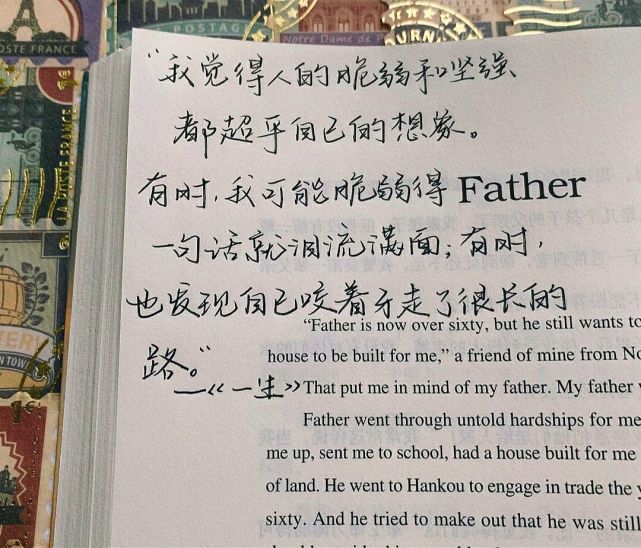 POSTE FRANCE
Notre Dame de P
URN
LA POSTE FRANCE
TERY
N TOWN
“我觉得人的脆弱和坚强
都超乎自己的想象。
有时,我可能脆弱得
Father
一句话就泪流满面;有时,
也发现自己咬着牙走了很长的
路。”
—《一生》
“Father is now over sixty, but he still wants to
house to be built for me,” a friend of mine from No
That put me in mind of my father. My father w
Father went through untold hardships for me
me up, sent me to school, had a house built for me
of land. He went to Hankou to engage in trade the y
sixty. And he tried to make out that he was still